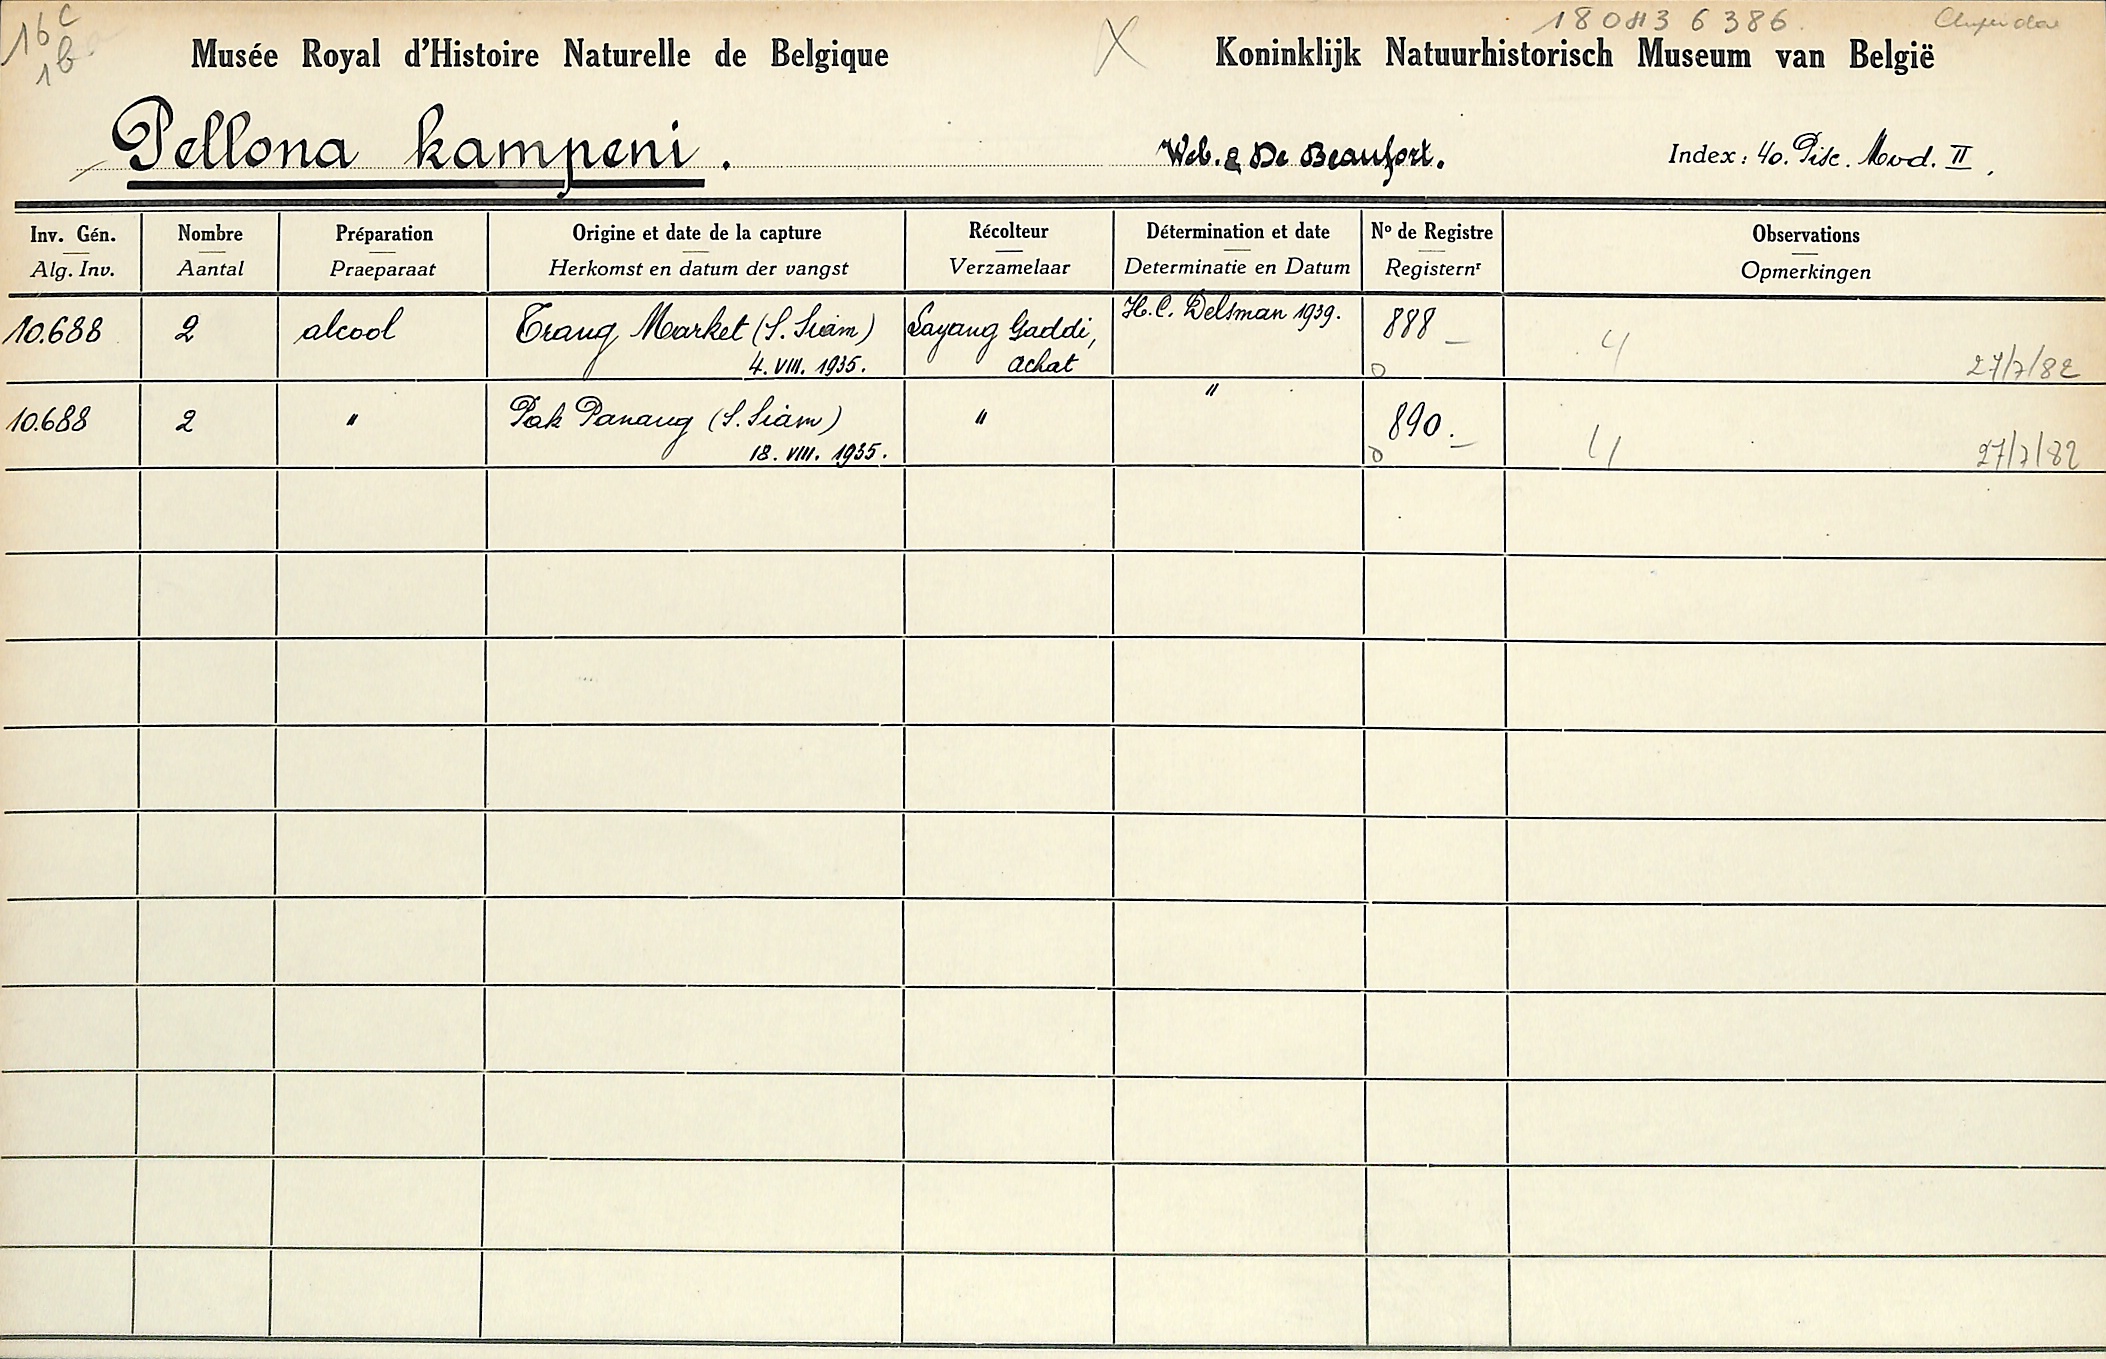 16 c
1 b
180436386. Clupeidae
Musée Royal d'Histoire Naturelle de Belgique X Koninklijk Natuurhistorisch Museum van België
Pellona kampeni. Web. & De Beaufort. Index: 40. Pisc. Mvd. II.
Inv. Gén. Nombre Préparation Origine et date de la capture Récolteur Détermination et date Nº de Registre Observations
Alg. Inv. Aantal Praeparaat Herkomst en datum der vangst Verzamelaar Determinatie en Datum Registernʳ Opmerkingen
10.688 2 alcool Trang Market (S. Siam) Sayang Gaddi, H. C. Delsman 1939. 888
4. VIII. 1935. achat 27/7/82
10.688 2 " Pak Panang (S. Siam) " " 890.
18. VIII. 1935. 27/7/82